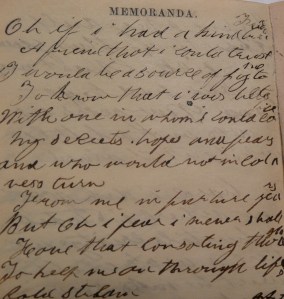 MEMORANDA.
Oh if i had a kind
A friend that i could trust
T would be a source of
To know that i was
With one in whom i could
My secrets hopes and fears
and who would not in
ness turn
From me in future
But Oh i fear i never shall
Have that consoling
To help me on through life